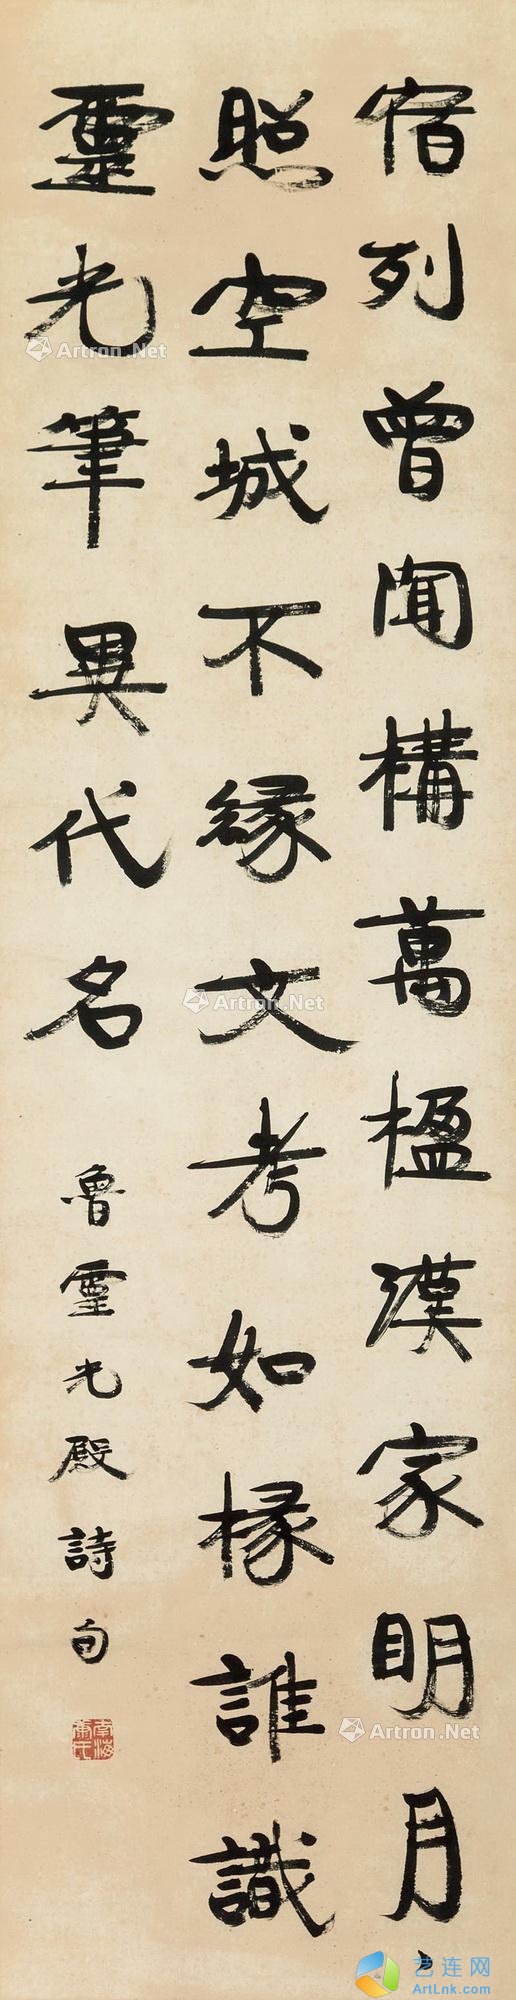 宿列曾聞構萬楹漢家明月
照空城不緣文考如椽誰識
靈光筆異代名
魯靈光殿詩句
南海康氏
Artron.Net
Artron.Net
Artron.Net
Artron.Net
艺连网
ArtLnk.com